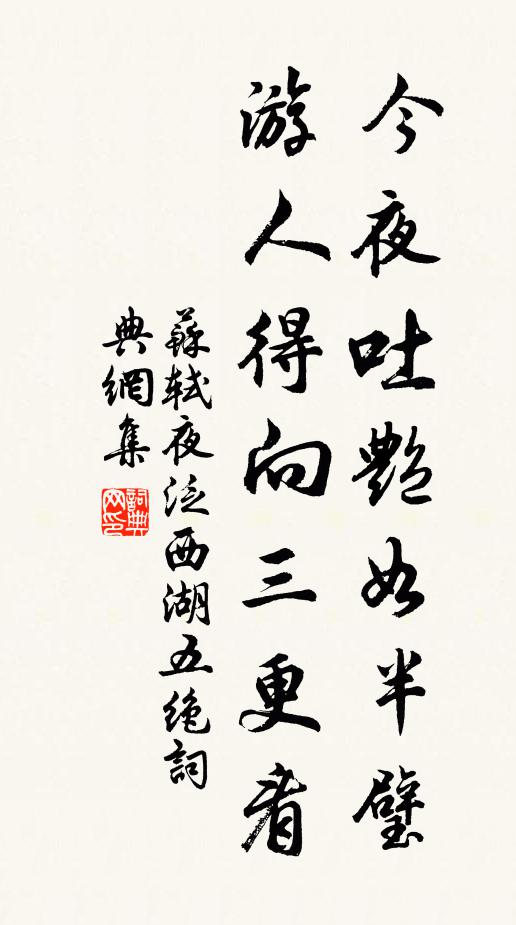 今夜吐艷如半璧
游人得向三更看
蘇軾夜泛西湖五絶詞
典網集
詞典网印